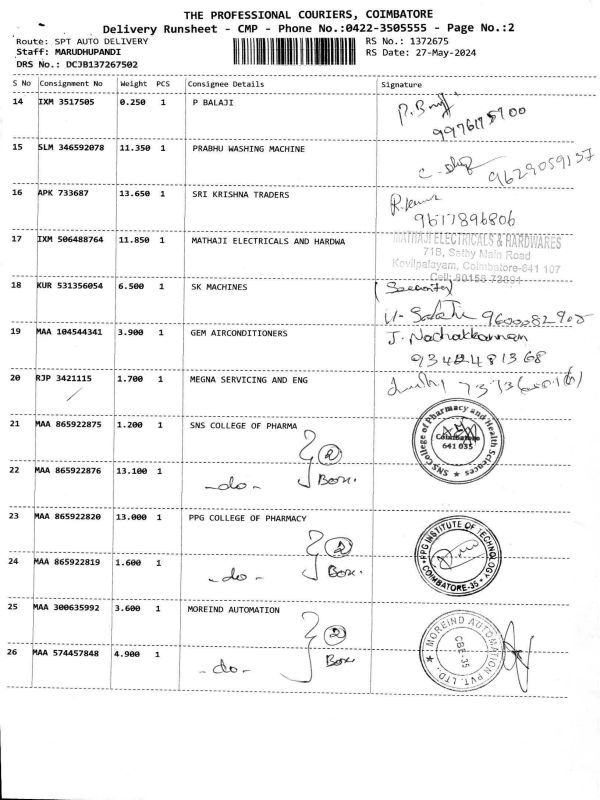 THE PROFESSIONAL COURIERS, COIMBATORE
Delivery Runsheet - CMP - Phone No.:0422-3505555 - Page No.:2
Route: SPT AUTO DELIVERY RS No.: 1372675
Staff: MARUDHUPANDI RS Date: 27-May-2024
DRS No.: DCJB137267502
S No Consignment No Weight PCS Consignee Details Signature
14 IXM 3517505 0.250 1 P BALAJI
15 SLM 346592078 11.350 1 PRABHU WASHING MACHINE
9629059137
16 APK 733687 13.650 1 SRI KRISHNA TRADERS
R.Kumar
9617896806
17 IXM 506488764 11.850 1 MATHAJI ELECTRICALS AND HARDWA
MATHAJI ELECTRICALS & HARDWARES
71B, Sathy Main Road
Kovilpalayam, Coimbatore-641 107
Cell:
18 KUR 531356054 6.500 1 SK MACHINES
(Security)
9600082905
19 MAA 104544341 3.900 1 GEM AIRCONDITIONERS
J. Nachakkannan
20 RJP 3421115 1.700 1 MEGNA SERVICING AND ENG
21 MAA 865922875 1.200 1 SNS COLLEGE OF PHARMA
SNS College of Pharmacy and Health Sciences
Coimbatore
641 035
22 MAA 865922876 13.100 1 -do- 2 Box.
23 MAA 865922820 13.000 1 PPG COLLEGE OF PHARMACY
PPG INSTITUTE OF TECHNOLOGY
COIMBATORE-35
24 MAA 865922819 1.600 1 -do- 2 Box.
25 MAA 300635992 3.600 1 MOREIND AUTOMATION
MOREIND AUTOMATION PVT. LTD.
CBE-35
26 MAA 574457848 4.900 1 -do- 2 Box